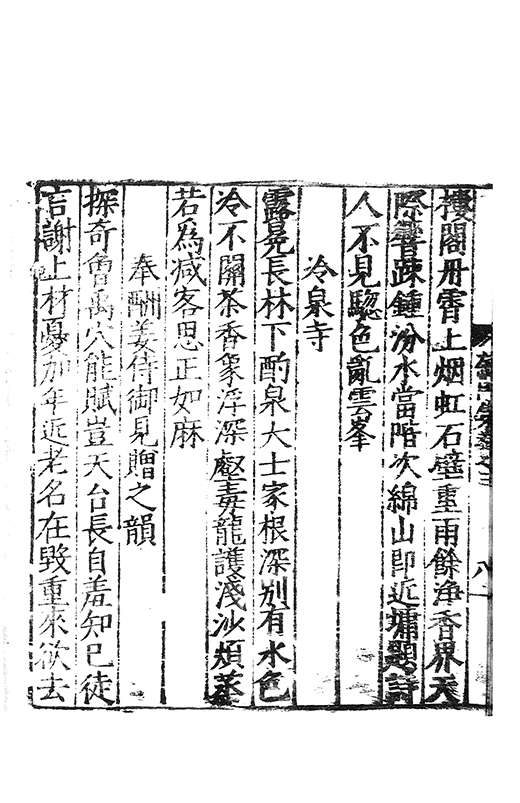 樓閣丹霄上烟虹石壁重雨餘净香界天
際響踈鍾汾水當階次綿山即近墉題詩
人不見驄色亂雲峯
冷泉寺
露晃長林下酌泉大士家根深别有水色
冷不關茶香象浮深壑毒龍護淺沙煩蒸
若為减客思正如麻
奉酬姜侍御見贈之韻
探奇曾禹穴能賦豈天台長自羞知已徒
言謝上材憂加年近老名在毀重來欲去